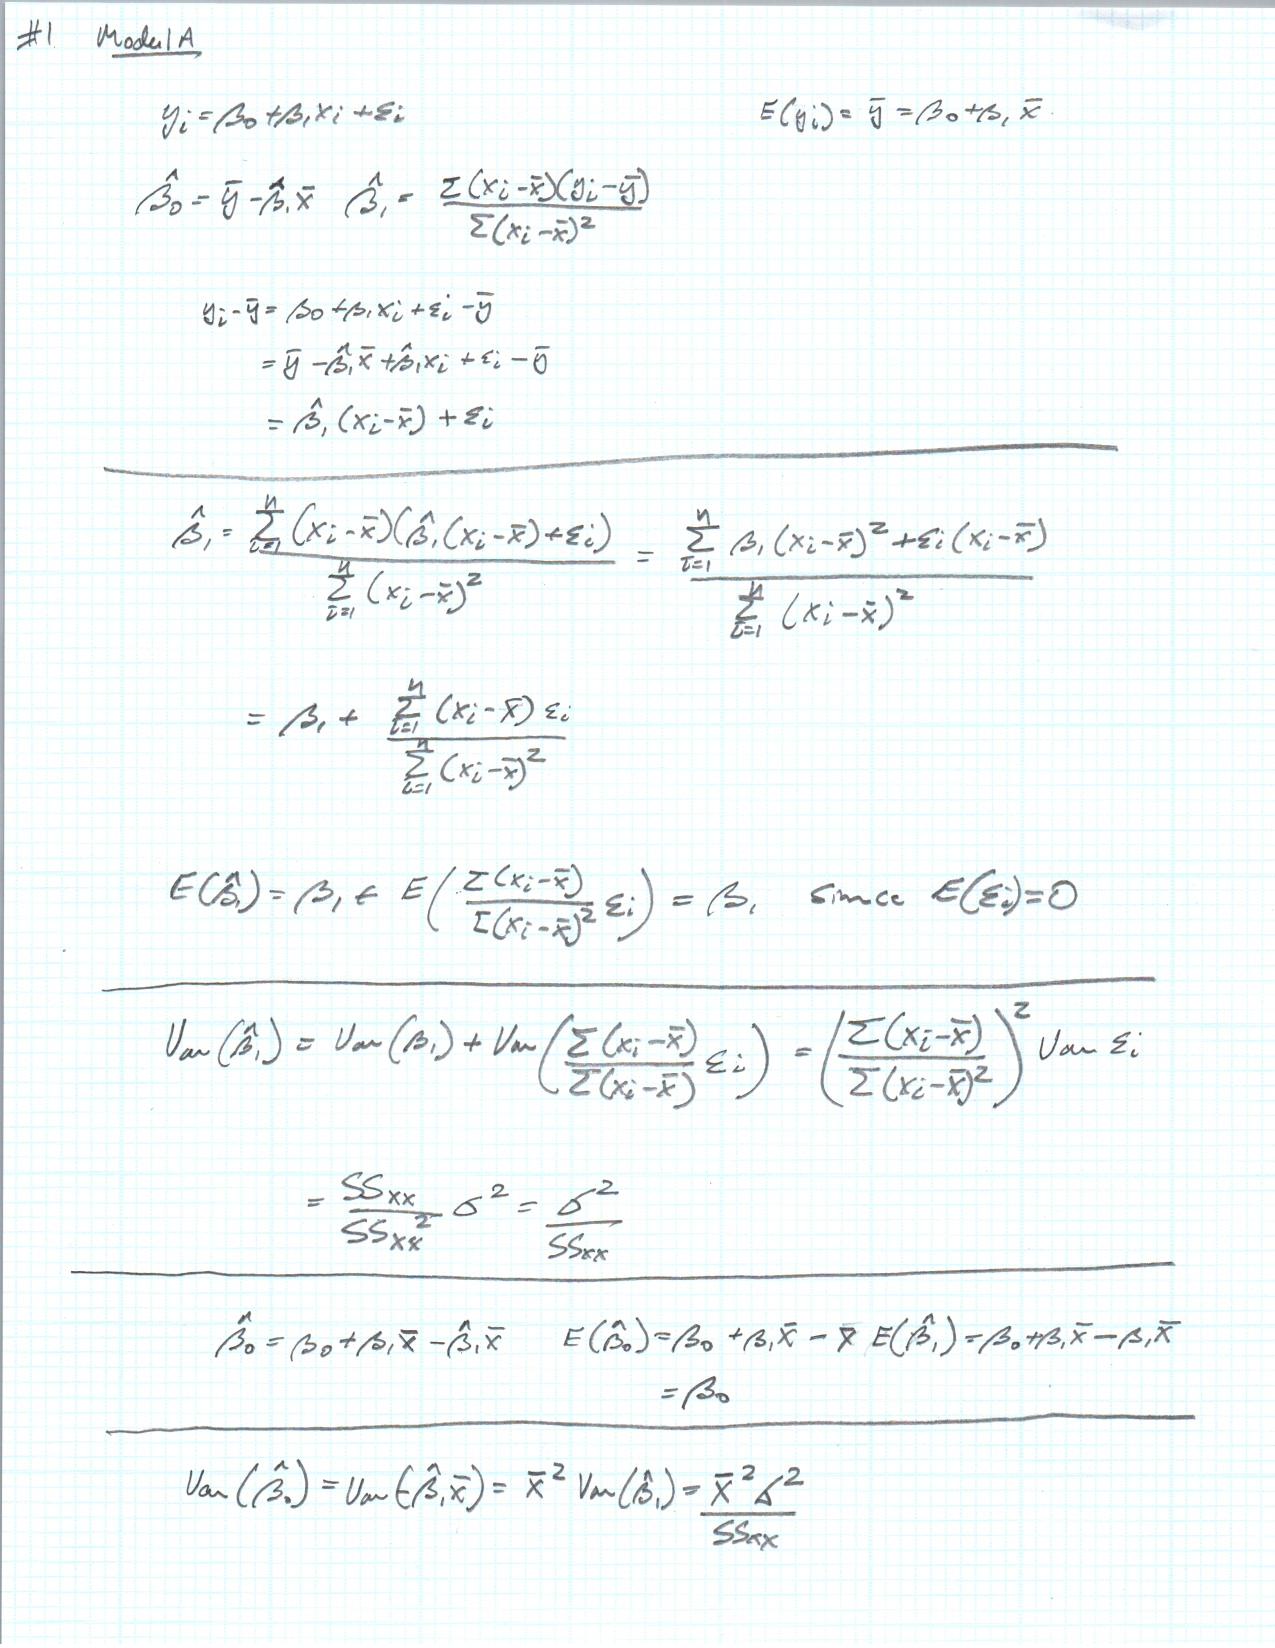 #1 Model A
yᵢ = β₀ + β₁xᵢ + εᵢ E(yᵢ) = ȳ = β₀ + β₁ x̄.
β̂₀ = ȳ - β̂₁x̄ β̂₁ = Σ(xᵢ-x̄)(yᵢ-ȳ) / Σ(xᵢ-x̄)²
yᵢ - ȳ = β₀ + β₁xᵢ + εᵢ - ȳ
= ȳ - β̂₁x̄ + β̂₁xᵢ + εᵢ - ȳ
= β̂₁(xᵢ-x̄) + εᵢ
β̂₁ = Σⁿᵢ₌₁ (xᵢ-x̄)(β̂₁(xᵢ-x̄)+εᵢ) / Σⁿᵢ₌₁ (xᵢ-x̄)² = Σⁿᵢ₌₁ β₁(xᵢ-x̄)² + εᵢ(xᵢ-x̄) / Σⁿᵢ₌₁ (xᵢ-x̄)²
= β₁ + Σⁿᵢ₌₁ (xᵢ-x̄) εᵢ / Σⁿᵢ₌₁ (xᵢ-x̄)²
E(β̂₁) = β₁ + E(Σ(xᵢ-x̄) / Σ(xᵢ-x̄)² εᵢ) = β₁ since E(εᵢ)=0
Var(β̂₁) = Var(β₁) + Var(Σ(xᵢ-x̄) / Σ(xᵢ-x̄) εᵢ) = (Σ(xᵢ-x̄) / Σ(xᵢ-x̄)²)² Var εᵢ
= SSxx / SSxx² σ² = σ² / SSxx
β̂₀ = β₀ + β₁x̄ - β̂₁x̄ E(β̂₀) = β₀ + β₁x̄ - x̄ E(β̂₁) = β₀ + β₁x̄ - β₁x̄
= β₀
Var(β̂₀) = Var(-β̂₁x̄) = x̄² Var(β̂₁) = x̄²σ² / SSxx